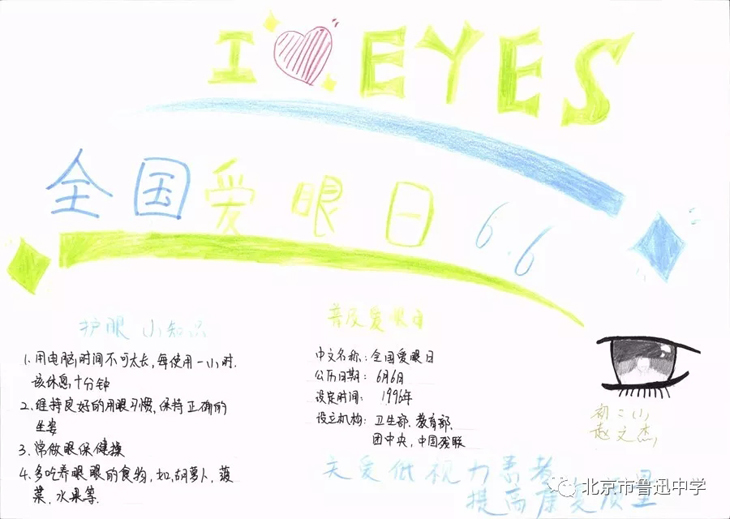 I ♥ EYES
全国爱眼日 6.6
护眼小知识
1. 用电脑时间不可太长，每使用一小时.
该休息十分钟
2. 维持良好的用眼习惯，保持正确的
坐姿
3. 常做眼保健操
4. 多吃养眼眼的食物，如，胡萝卜，菠
菜、水果等.
普及爱眼日
中文名称：全国爱眼日
公历日期：6月6日
设定时间：1996年
设立机构：卫生部、教育部、
团中央，中国残联
初二(1)
赵文杰
关爱低视力患者
提高康复质量
北京市鲁迅中学